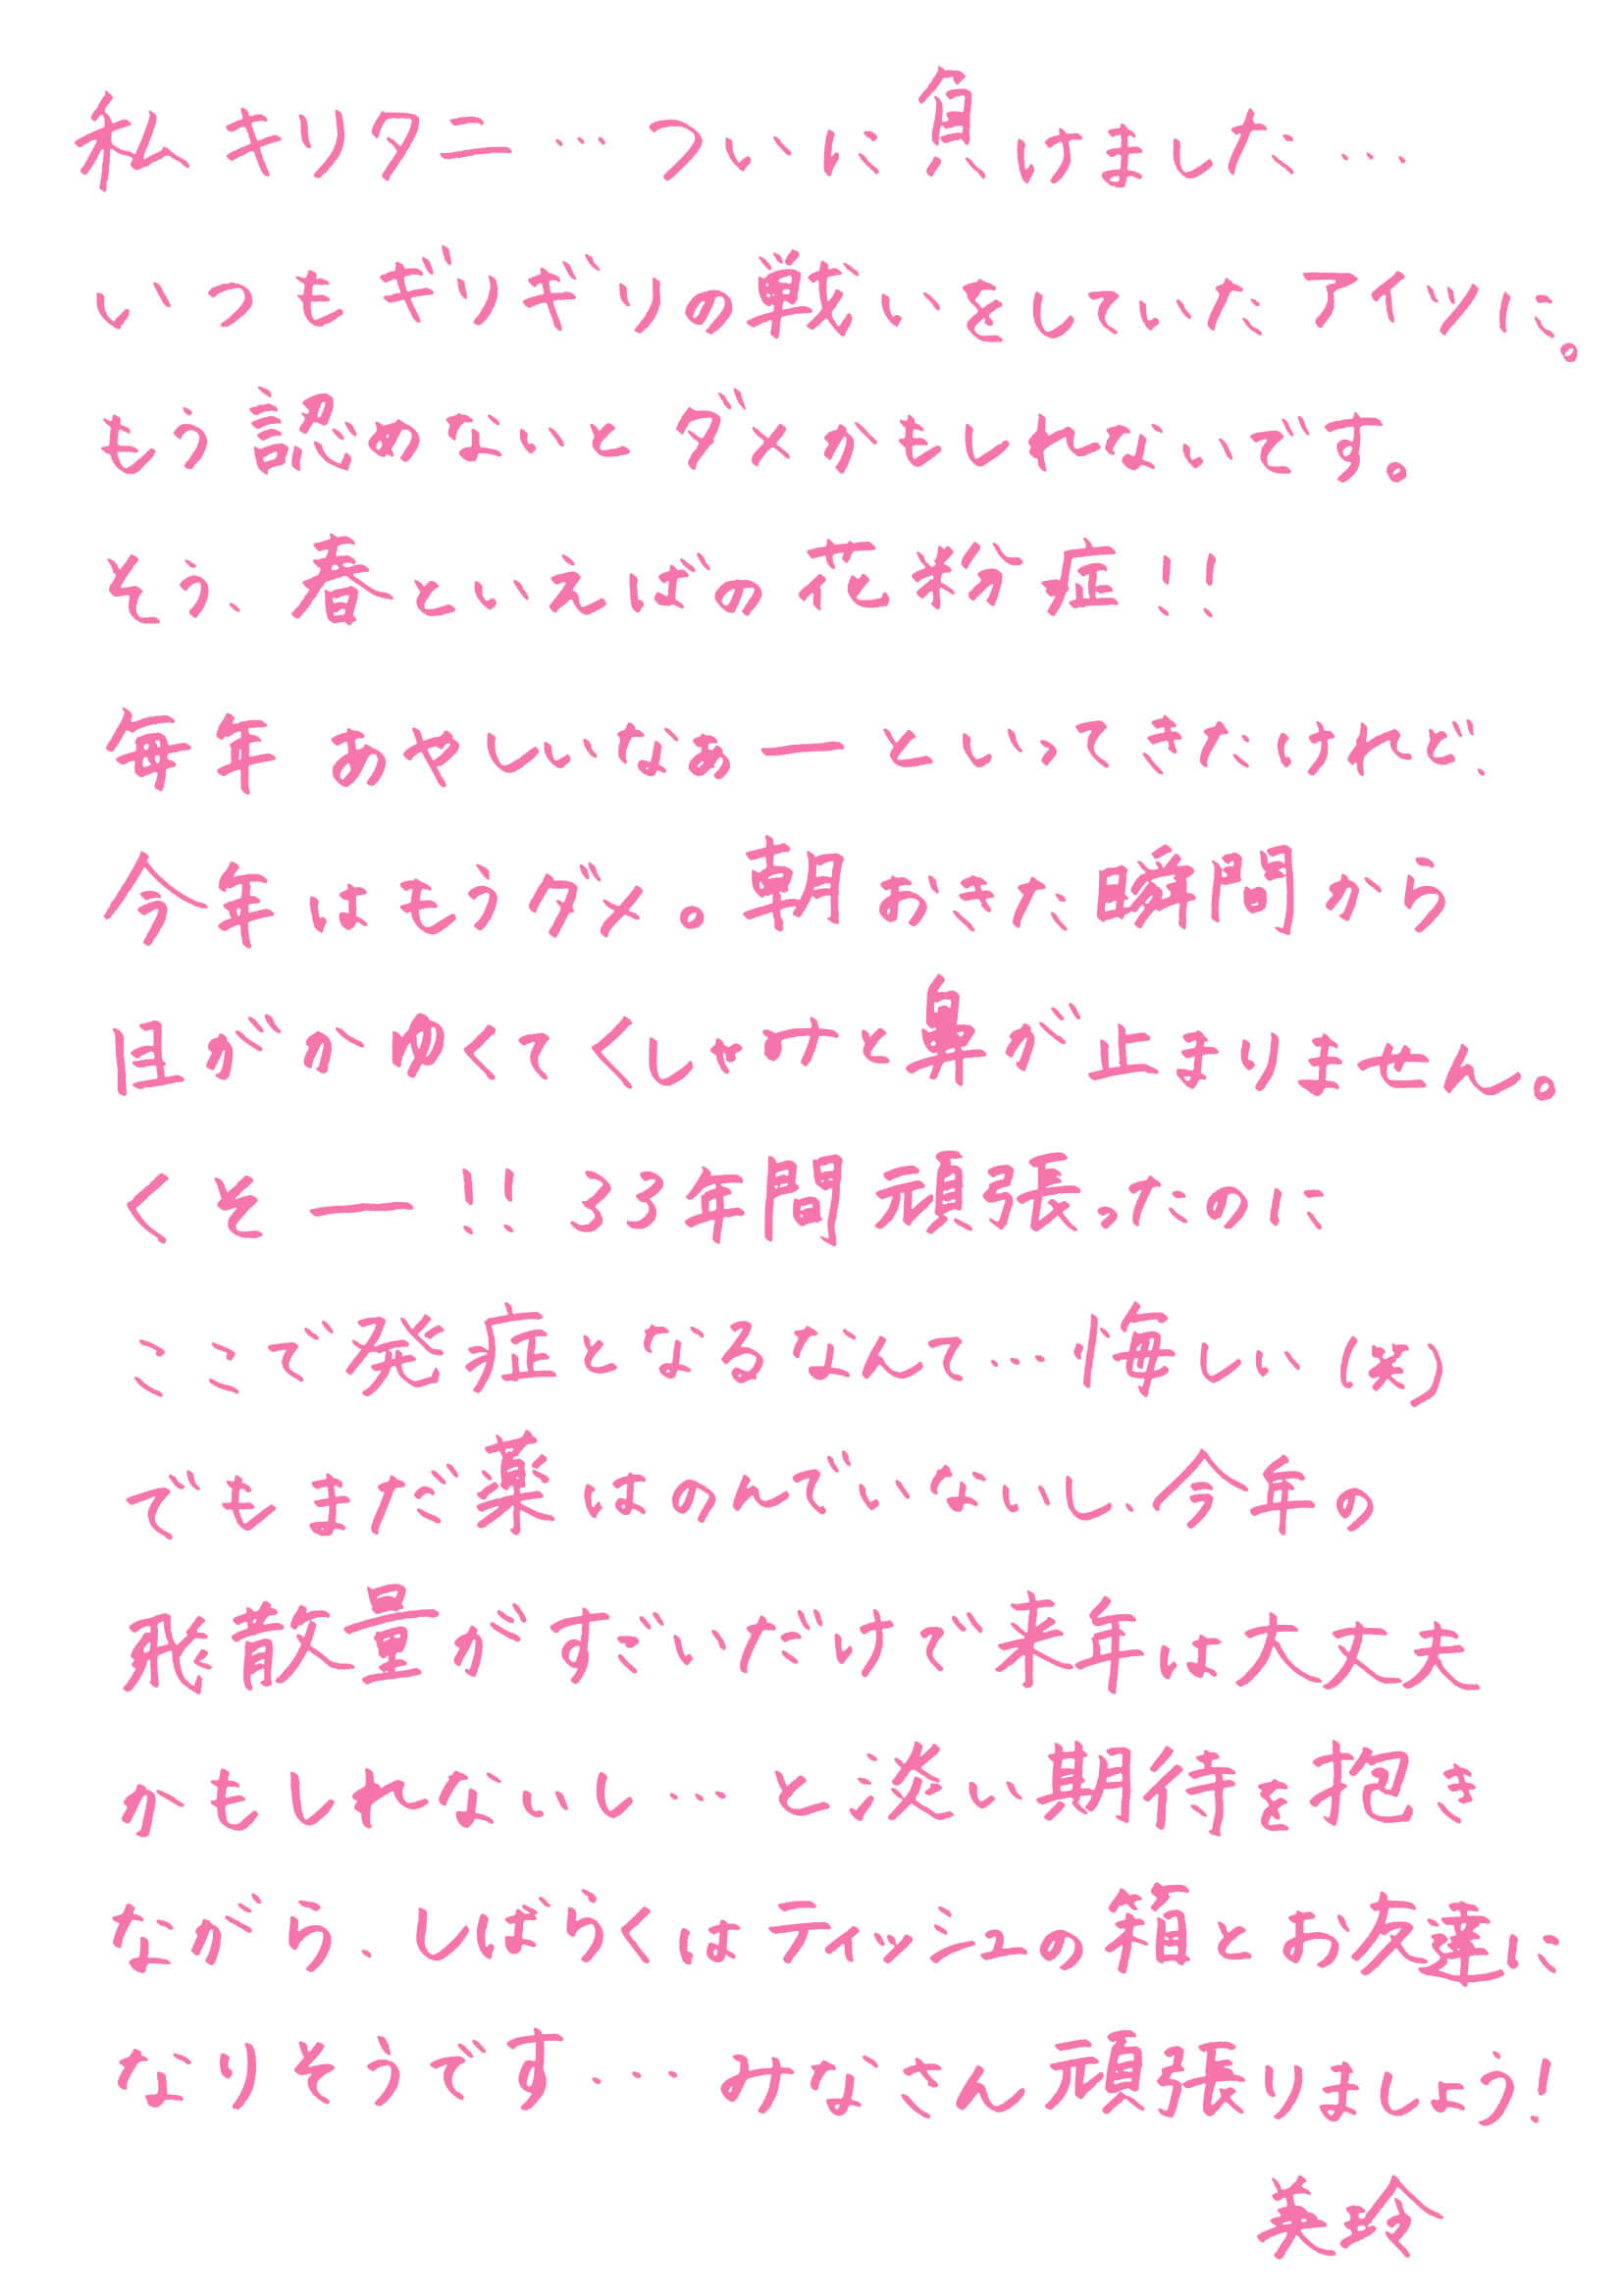 私キリタニ… ついに負けました…
いつもギリギリの戦いをしていたアイツに。
もう認めないとダメかもしれないです。
そう、春といえばの花粉症!!
毎年 あやしいなぁーといってきたけれど、
今年はもうダメ。朝おきた瞬間から
目がかゆくてくしゃみと鼻が止まりません。
くそー!! 33年間頑張ったのに
ここで発症となるなんて…悔しい(笑)
でもまだ薬はのんでいないし、今年の
飛散量がすごいだけで来年は大丈夫
かもしれないし…と淡い期待を抱き
ながら、しばらくはティッシュの箱とお友達に
なりそうです… みなさん頑張りましょう!
美玲